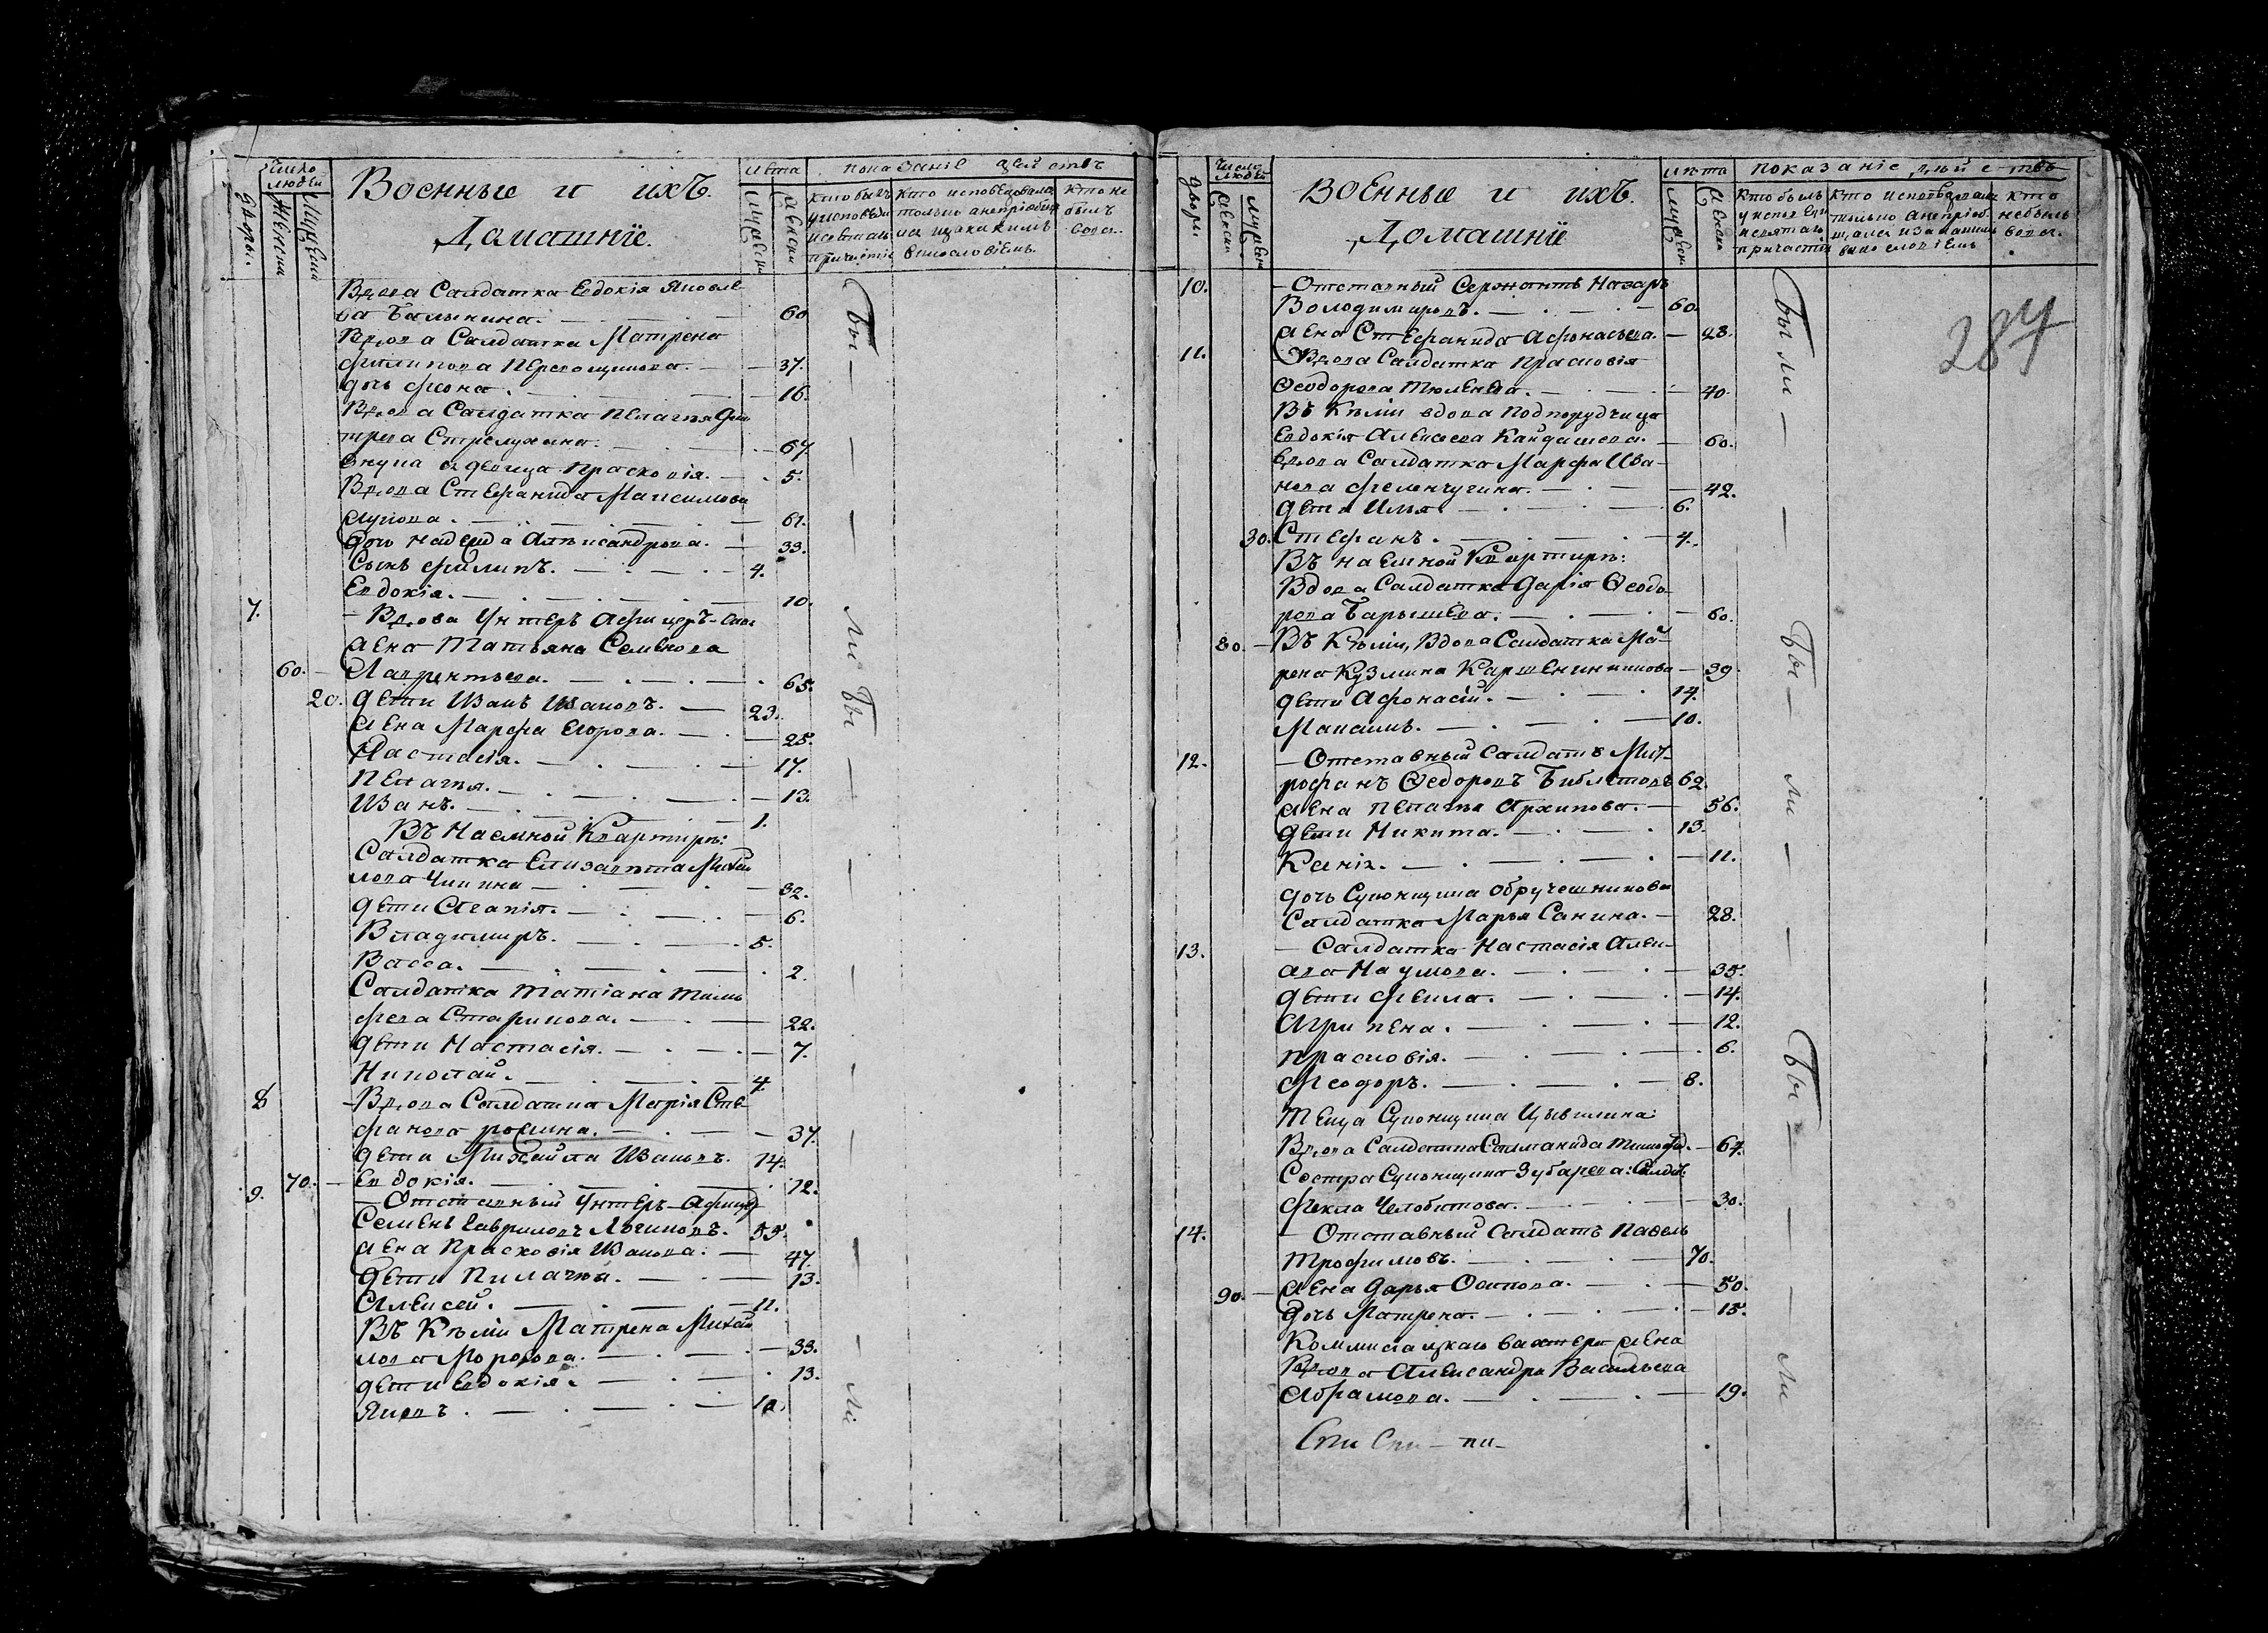 Число людей
Дворы.
Женска
Мужеска
Военные и ихъ
Домашнїе.
лета
мужеска
женска
показанiе действъ
кто былъ у исповѣди и святаго причастiя
кто исповедовался только а не прiобщился и за какимъ винословiемъ
кто не былъ вовсе.
Вдова Салдатка Евдокiя Яковле
ва Балыкина. 60
Вдова Салдатка Матрена
Филипова Перевощикова. 37.
дочь Фиона. 16.
Вдова Салдатка Пелагея Дми
трева Стрелухина. 67.
Внука девица Прасковiя. 5.
Вдова Стефанида Максимова
61.
дочь Надежда Александрова. 33.
Сынъ Филипъ. 4.
Евдокiя. 10.
7. Вдова Унтеръ Афицерская
жена Татьяна Семенова
60. Лаврентьева. 65.
20. дети Иванъ Ивановъ. 23.
жена Марфа Егорова. 25.
Настасiя. 17.
Пелагея. 13.
Иванъ. 1.
Въ Наемной Квартирѣ:
Салдатка Елизавѣта Михай
лова 32.
дети Агапiя. 6.
Владимиръ. 5.
Васса. 2.
Салдатка Татiана Тимо
феева Старикова. 22.
дети Настасiя. 7.
Николай. 4.
8 Вдова Салдатка Марiя Сте
фанова рошина. 37.
дети Михайла Ивановъ. 14.
70. Евдокiя. 12.
9. Отставный Унтеръ-Афицер
Семенъ Гавриловъ Логиновъ. 55.
жена Прасковiя Иванова. 47.
дети Пилагея. 13.
Алексей. 11.
Въ Кѣлiи Матрена Михай
лова Морозова. 33.
дети Евдокiя. 13.
Яковъ. 10.
Дворы
Число людей
женска
мужеска
Военные и ихъ.
Домашнїе
лѣта
мужеска
женска
показанiе действъ
кто былъ у исповеди и святаго причастiя
кто исповедовался только а непрiобщался и за какимъ винословiемъ
кто небылъ вовсе.
287
10. Отставный Сержантъ Назаръ
Володимировъ. 60.
жена Стефанида Афонасьева. 28.
11. Вдова Салдатка Прасковiя
Ѳеодорова Тюленева. 40.
Въ Кѣлiи вдова Подпорудчица
Евдокiя Алексеева Кандашева. 60.
вдова Салдатка Марфа Ива-
нова Феленчугина. 42.
дети Илья 6.
30. Стефанъ. 4.
Въ наемной Квартирѣ:
Вдова Салдатка Дарiя Ѳеодо
рова Барышева. 60.
80. Въ Кѣлiи, Вдова Салдатка Ма-
рена Кузмина 39.
дети Афонасiй. 14.
Макаимъ. 10.
12. Отставный Салдатъ Мит-
рофанъ Ѳедоровъ Библетовъ 62.
жена Пелагея Архипова. 56.
дети Никита. 13.
Ксанiя. 11.
дочь Суконщика Обручешникова
Салдатка Марья Санина. 28.
13. Салдатка Настасiя Алек-
ава Наумова. 35.
дети Фекла. 14.
Агрипена. 12.
Прасковiя. 6.
Феодоръ. 8.
Теща Суконщика Цывилина:
Вдова Салдатка Саламанида Тимофе. 64.
Сестра Суконщика Зубарева: Салдат.
Фекла Челобитова. 30.
14. Отставный Салдатъ Павелъ
Трофимовъ. 70.
90. жена Дарья Осипова. 50.
дочь Матрена. 15.
Коммисаицкаго вахтера жена
Вдова Александра Васильева
Абрамова. 19.
Бы — ли Бы — ли
Бы ли — Бы — ли — Бы — ли